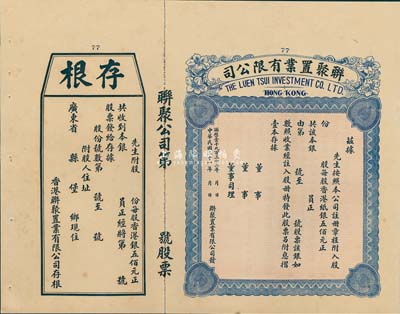 77
司公限有業置聚聯
THE LUEN TSUI INVESTMENT CO. LTD.
HONG KONG
茲據
先生按照本公司註冊章程附入股
份 股每股香港紙銀五佰元正
共該本銀 員正
由第 號至 號股票該銀如
數照收業經註入股冊特發此股票另附息摺
壹本存據
董事
董事
董事司理
月 日
中華民國 年 月 日 聯聚置業有限公司發
聯聚公司第 號股票
77
根存
先生附股 份每股香港銀五佰元正
共收到本銀 員正經將第 號
股票發給存據
股份號數第 號至 號
附股人住址
廣東省 縣 堡 鄉現住
香港聯聚置業有限公司存根